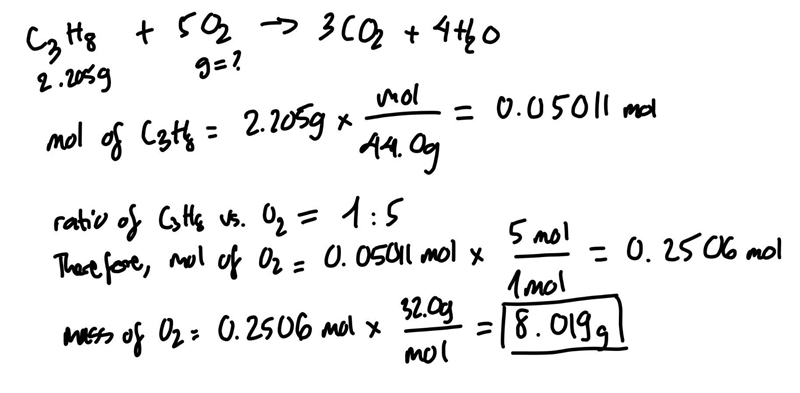 C₃H₈ + 5O₂ → 3CO₂ + 4H₂O
2.205g g=?
mol of C₃H₈ = 2.205g × mol/44.0g = 0.05011 mol
ratio of C₃H₈ vs. O₂ = 1:5
Therefore, mol of O₂ = 0.05011 mol × 5 mol/1 mol = 0.2506 mol
mass of O₂ = 0.2506 mol × 32.0g/mol = 8.019g